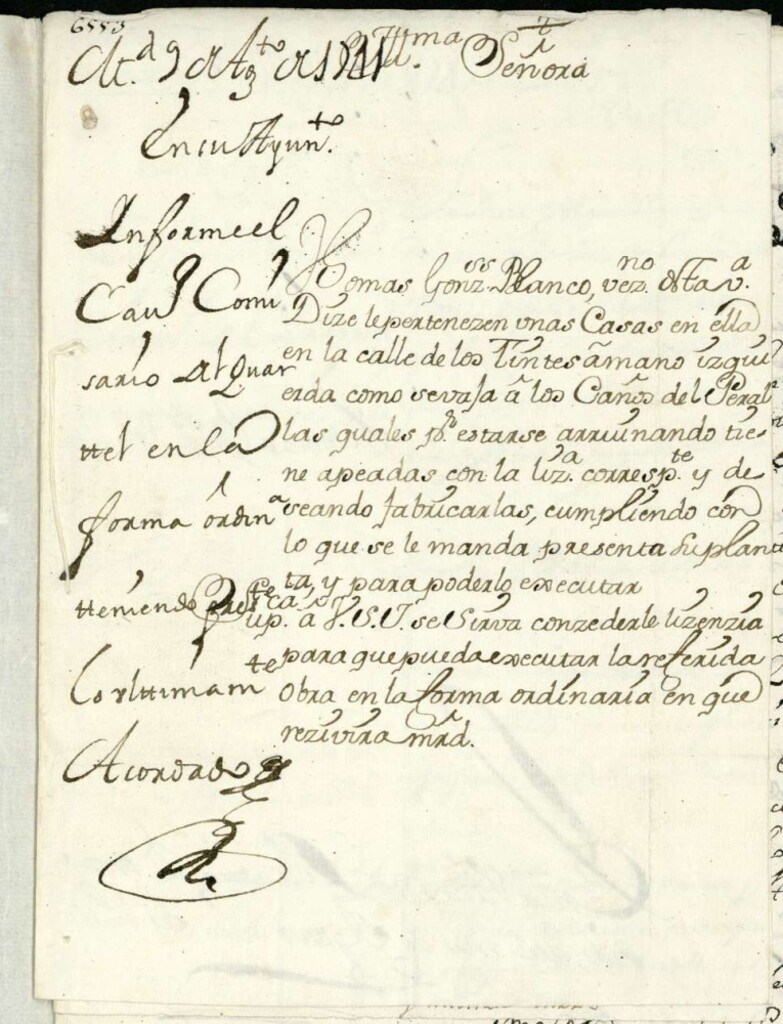 6553
Ill.ma Señora
M.d 9 de Ag.to de
En su Ayun.to
Informe el
Cau.º Comi
sario del Quar
ttel en la
forma ordin.a
tteniendo press.te
lo ulttimam.te
Acordado
Thomas Gonz.ss Blanco, vez.no de sta v.a
Dize le pertenezen unas Casas en ella
en la calle de los Tintes â mano izqui
erda como se vaja â los Caños del Peral
las quales p.r estarse arruinando tie-
ne apeadas con la liz.a corresp.te y de
seando fabricarlas, cumpliendo con
lo que se le manda presenta su plan
ta, y para poderlo executar
Sup.ca â V.S.I. se sirva conzederle lizenzia
para que pueda executar la referida
obra en la forma ordinaria en que
rezivira mrd.